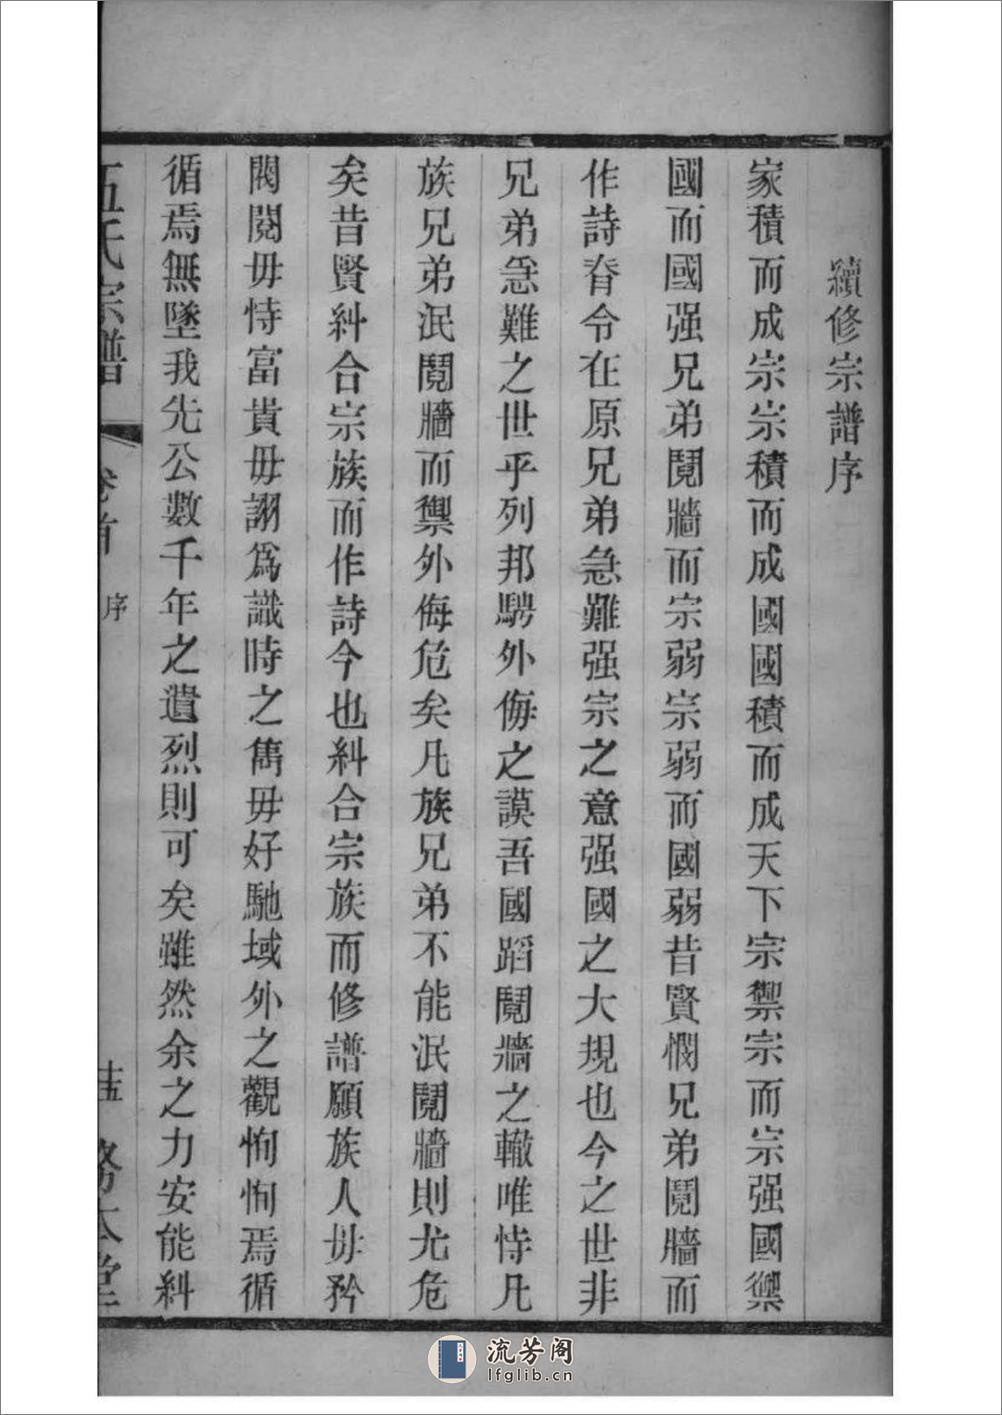 續修宗譜序
家積而成宗宗積而成國國積而成天下宗禦宗而宗强國禦
國而國强兄弟鬩牆而宗弱宗弱而國弱昔賢憫兄弟鬩牆而
作詩脊令在原兄弟急難强宗之意强國之大規也今之世非
兄弟急難之世乎列邦騁外侮之謨吾國蹈鬩牆之轍唯恃凡
族兄弟泯鬩牆而禦外侮危矣凡族兄弟不能泯鬩牆則尤危
矣昔賢糾合宗族而作詩今也糾合宗族而修譜願族人毋矜
閥閱毋恃富貴毋謝爲識時之雋毋好馳域外之觀恂恂焉循
循焉無墜我先公數千年之遺烈則可矣雖然余之力安能糾
伍氏宗譜
卷首
序
十五
務本堂
流芳阁
lfglib.cn